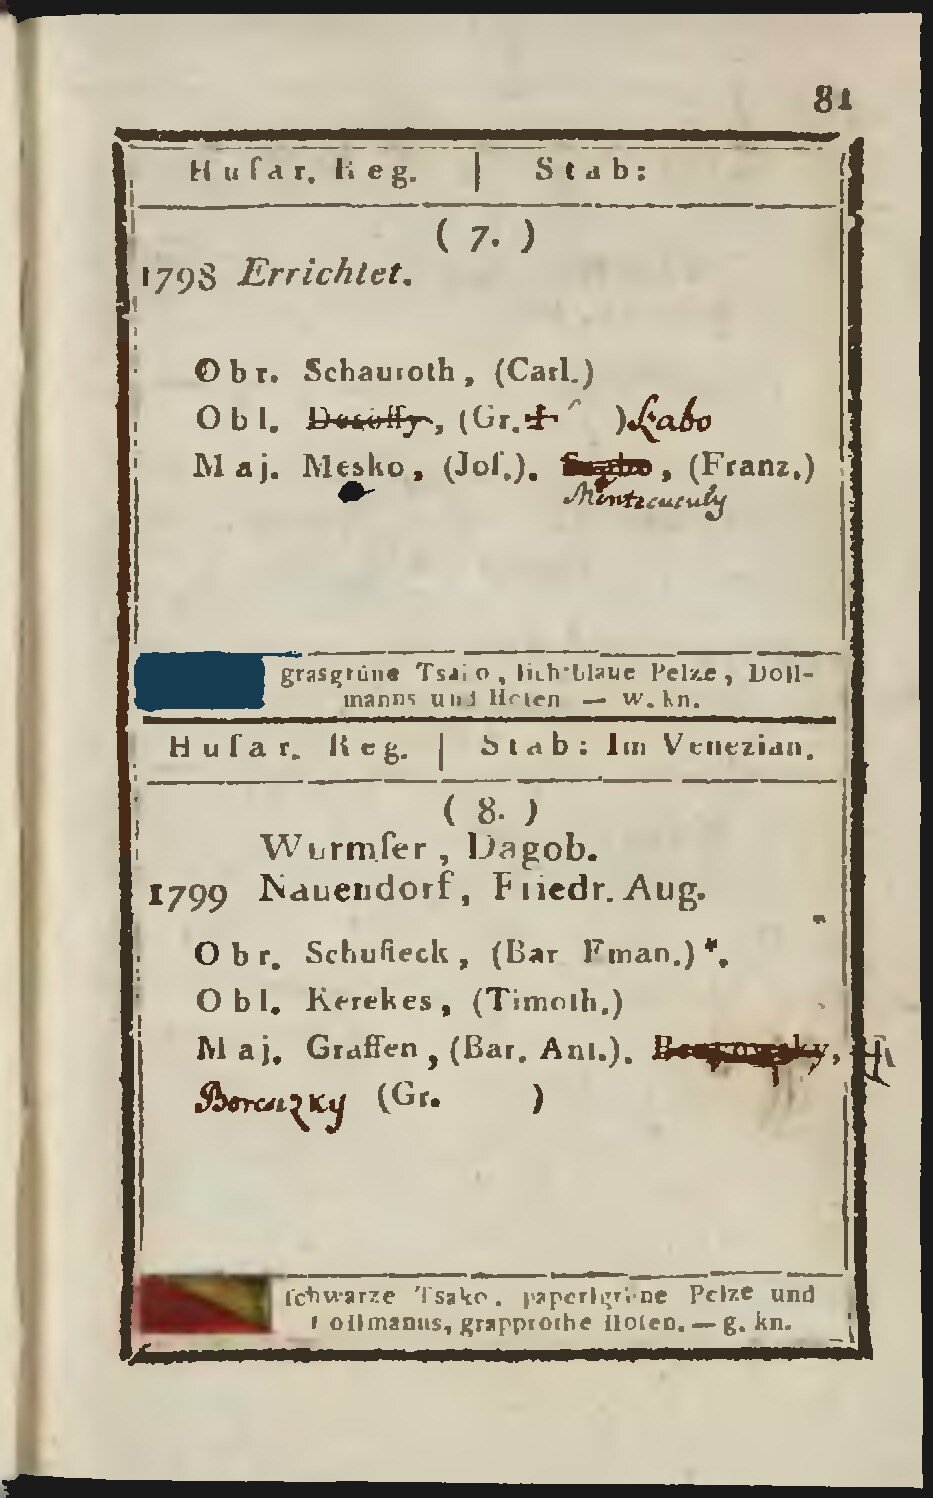 81
Huſar. Reg. | Stab:
( 7. )
1798 Errichtet.
Obr. Schauroth, (Carl.)
Obl. Desöffy, (Gr. ) Łabo
Maj. Mesko, (Joſ.). , (Franz.)
Montecuculy
grasgrüne Tsako, lichtblaue Pelze, Doll-
manns und Hoſen — w. kn.
Huſar. Reg. | Stab: Im Venezian.
( 8. )
Wurmſer, Dagob.
1799 Nauendorf, Friedr. Aug.
Obr. Schuſteck, (Bar Eman.)*.
Obl. Kerekes, (Timoth.)
Maj. Graffen, (Bar. Ant.). ,
(Gr. )
ſchwarze Tsako, paperlgrüne Pelze und
Dollmanns, grapprothe Hoſen. — g. kn.